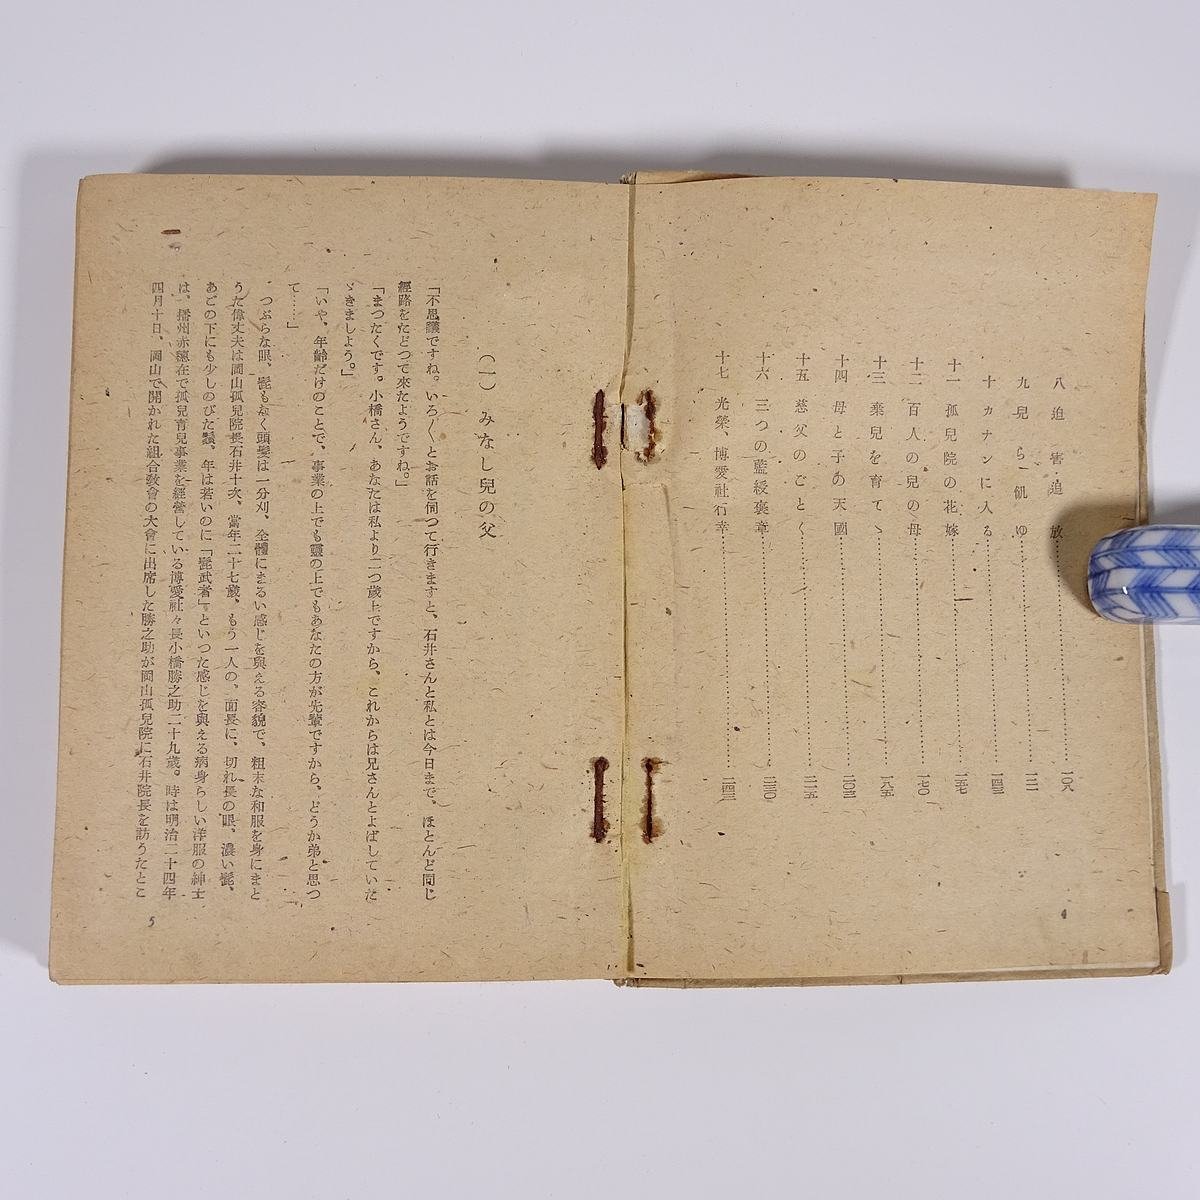 八 迫害・追放……一〇八
九 兒ら飢ゆ……一二一
十 カナンに入る……一四三
十一 孤兒院の花嫁……一五七
十二 百人の兒の母……一七〇
十三 棄兒を育てゝ……一八五
十四 母と子の天國……二〇三
十五 慈父のごとく……二一五
十六 三つの藍綬褒章……二三〇
十七 光榮、博愛社行幸……二四三
(一) みなし兒の父
「不思議ですね。いろ〳〵とお話を伺つて行きますと、石井さんと私とは今日まで、ほとんど同じ
經路をたどつて來たようですね。」
「まつたくです。小橋さん、あなたは私より二つ歲上ですから、これからは兄さんとよばしていた
ゞきましよう。」
「いや、年齡だけのことで、事業の上でも靈の上でもあなたの方が先輩ですから、どうか弟と思つ
て……」
つぶらな眼、髭もなく頭髮は一分刈、全體にまるい感じを與える容貌で、粗末な和服を身にまと
うた偉丈夫は岡山孤兒院長石井十次、當年二十七歲、もう一人の、面長に、切れ長の眼、濃い髭、
あごの下にも少しのびた鬚、年は若いのに「髭武者」といつた感じを與える病身らしい洋服の紳士
は、播州赤穗在で孤兒育兒事業を經營している博愛社々長小橋勝之助二十九歲。時は明治二十四年
四月十日、岡山で開かれた組合敎會の大會に出席した勝之助が岡山孤兒院に石井院長を訪うたとこ
5